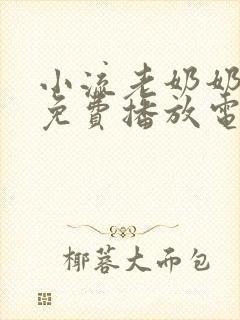 小流老奶奶
免費播放電
椰蓉大而包